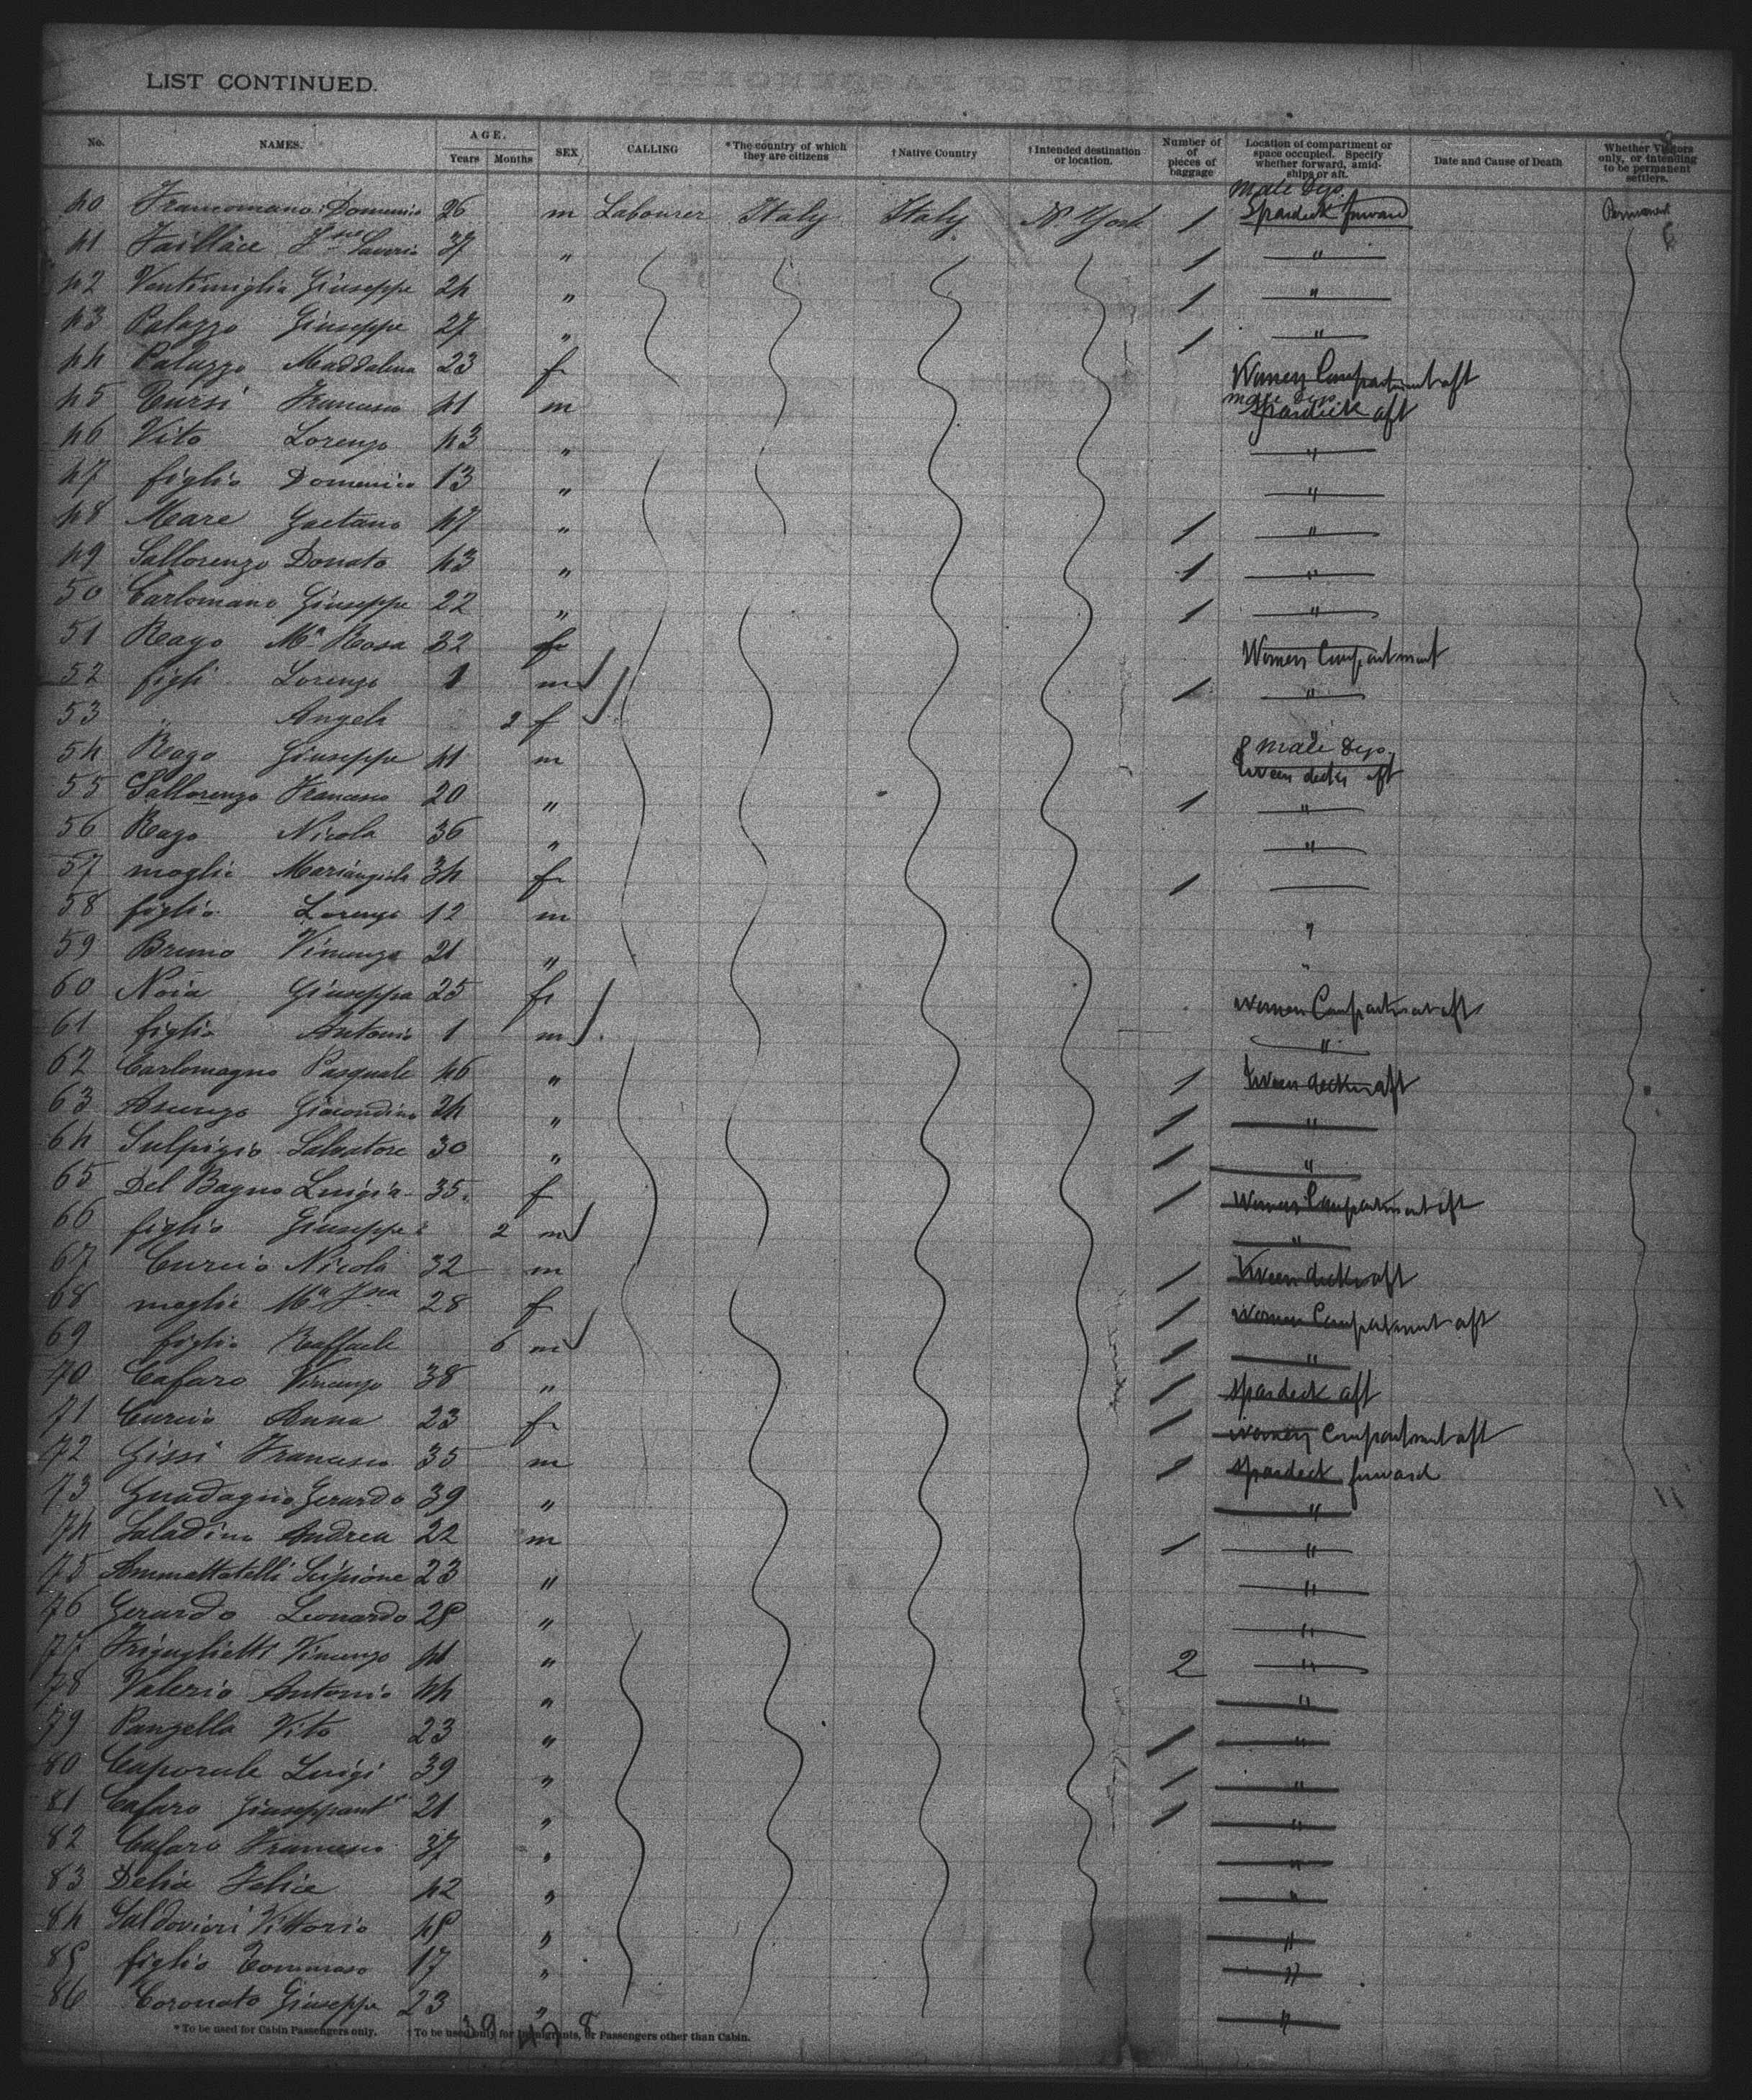 LIST CONTINUED.
No. NAMES. AGE. Years Months SEX CALLING *The country of which they are citizens †Native Country †Intended destination or location. Number of pieces of baggage Location of compartment or space occupied. Specify whether forward, amidships or aft. Date and Cause of Death Whether Visitors only, or intending to be permanent settlers.
40 Francomano Domenico 26 m Labourer Italy Italy N. York 1 male Dep. Spardeck forward Permanent
41 Faillace Saverio 37 " 1 "
42 Ventimiglia Giuseppe 24 " 1 "
43 Palazzo Giuseppe 27 " 1 "
44 Palazzo Maddalena 23 f Women Compartment aft
45 Cursi Francesco 41 m male Dep. Spardeck aft
46 Vito Lorenzo 43 " "
47 figlio Domenico 13 " "
48 Mare Gaetano 47 " 1 "
49 Sallorenzo Donato 43 " 1 "
50 Carlomano Giuseppe 22 " 1 "
51 Rago Mª Rosa 32 f Women Compartment
52 figli Lorenzo 1 m 1 "
53 " Angela 2 f "
54 Rago Giuseppe 41 m male Dep. tween decks aft
55 Sallorenzo Francesco 20 " 1 "
56 Rago Nicola 36 " "
57 moglie Mariangela 34 f 1
58 figlio Lorenzo 12 m "
59 Bruno Vincenzo 21 " "
60 Noia Giuseppa 25 f Women Compartment aft
61 figlio Antonio 1 m "
62 Carlomagno Pasquale 46 " 1 tween decks aft
63 Giocondino 24 " 1 "
64 Sulpizio Salvatore 30 " 1 "
65 Del Bagno Luigia 35 f 1 Women Compartment aft
66 figlio Giuseppe 2 m "
67 Curcio Nicola 32 m 1 tween decks aft
68 moglie Mª 28 f 1 Women Compartment aft
69 figlio Raffaele 6 m 1 "
70 Cafaro Vincenzo 38 " 1 Spardeck aft
71 Curcio Anna 23 f 1 Women Compartment aft
72 Gissi Francesco 35 m 1 Spardeck forward
73 Guadagno Gerardo 39 " "
74 Saladino Andrea 22 m 1 "
75 Ammattatelli Scipione 23 " "
76 Gerardo Leonardo 28 " "
77 Triguglietti Vincenzo 41 " 2 "
78 Valerio Antonio 44 " "
79 Panzella Vito 23 " 1 "
80 Caporale Luigi 39 " 1 "
81 Cafaro Giuseppant° 21 " 1 "
82 Cafaro Francesco 37 " "
83 Delia Felice 42 " "
84 Saldovieri Vittorio 48 " "
85 figlio Tommaso 17 " "
86 Coronato Giuseppe 23 " "
*To be used for Cabin Passengers only. †To be used only for Immigrants, or Passengers other than Cabin.
39 47 8